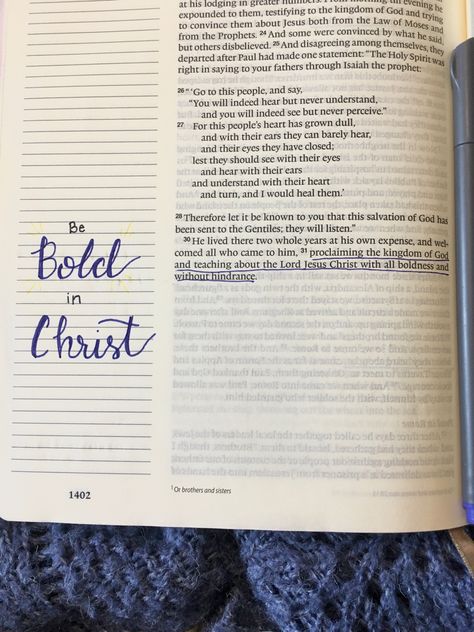 at his lodging in greater numbers. From morning till evening he
expounded to them, testifying to the kingdom of God and trying
to convince them about Jesus both from the Law of Moses and
from the Prophets. 24 And some were convinced by what he said,
but others disbelieved. 25 And disagreeing among themselves, they
departed after Paul had made one statement: "The Holy Spirit was
right in saying to your fathers through Isaiah the prophet:
26 "'Go to this people, and say,
"You will indeed hear but never understand,
and you will indeed see but never perceive."
27 For this people's heart has grown dull,
and with their ears they can barely hear,
and their eyes they have closed;
lest they should see with their eyes
and hear with their ears
and understand with their heart
and turn, and I would heal them.'
28 Therefore let it be known to you that this salvation of God has
been sent to the Gentiles; they will listen."
30 He lived there two whole years at his own expense, and wel-
comed all who came to him, 31 proclaiming the kingdom of God
and teaching about the Lord Jesus Christ with all boldness and
without hindrance.
Be
Bold
in
Christ
1402
1 Or brothers and sisters